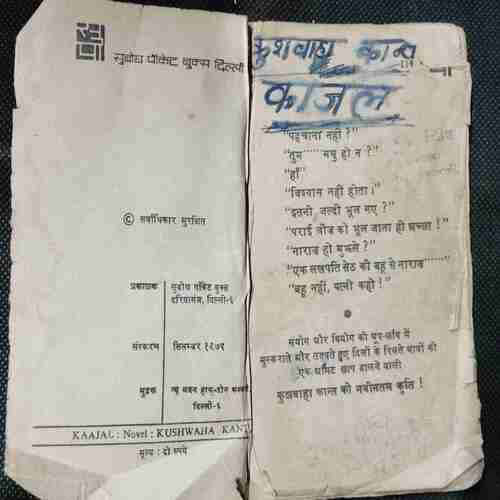 सुबोध पॉकेट बुक्स दिल्ली
© सर्वाधिकार सुरक्षित
प्रकाशक सुबोध पॉकेट बुक्स
दरियागंज, दिल्ली-६
संस्करण सितम्बर १९७६
मुद्रक
दिल्ली-६
KAAJAL : Novel : KUSHWAHA KANT
मूल्य : दो रुपये
कुशवाहा कान्त
काजल
"पहचाना नहीं ?"
"तुम ······ मधु हो न ?"
"हाँ"
"विश्वास नहीं होता ।"
"इतनी जल्दी भूल गए ?"
"पराई चीज को भूल जाना ही अच्छा !"
"नाराज हो मुझसे ?"
"एक लखपति सेठ की बहू से नाराज ······"
"बहू नहीं, पत्नी कहो !"
संयोग और वियोग की धूप-छाँव में
मुस्कराते और तड़पते हुए दिलों के रिसते घावों की
एक अमिट छाप डालने वाली
कुशवाहा कान्त की नवीनतम कृति !